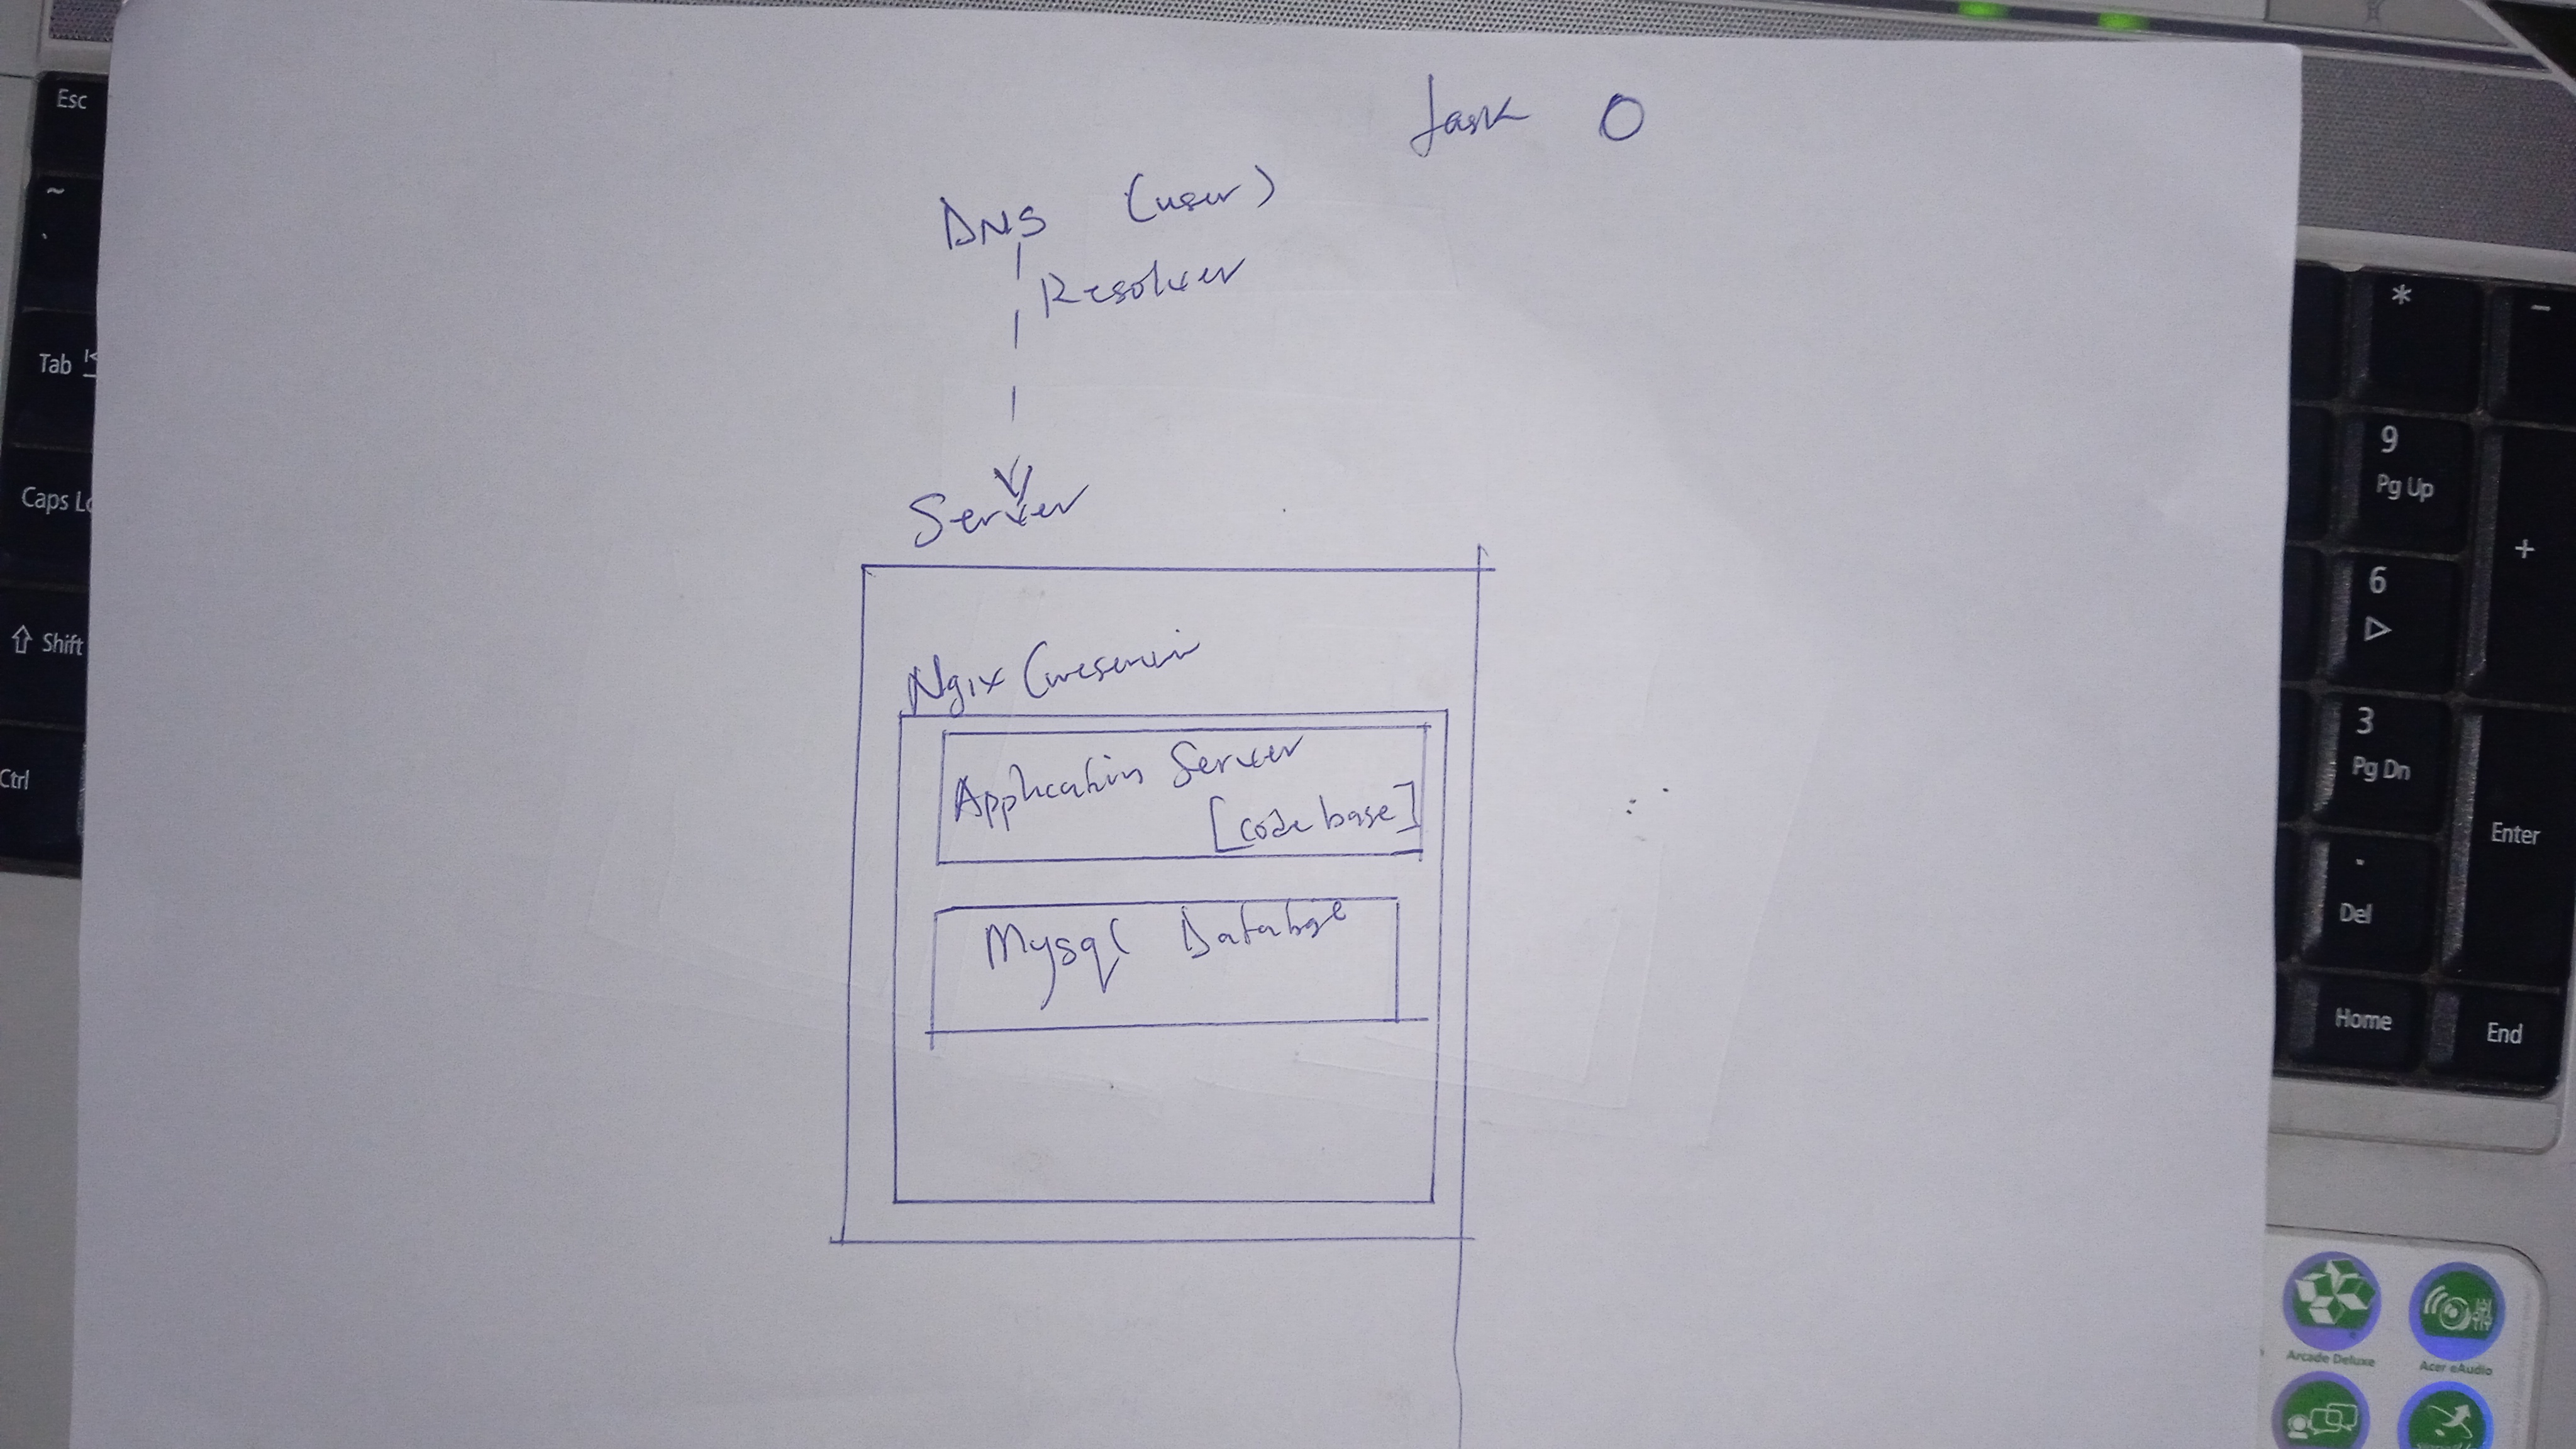 Task 0
DNS (user)
Resolver
Server
Ngix (
Application Server
[code base]
Mysql Database
Esc
~
`
Tab
Caps Lo
Shift
Ctrl
*
-
9
Pg Up
+
6
3
Pg Dn
Enter
.
Del
Home
End
Arcade Deluxe
Acer eAudio